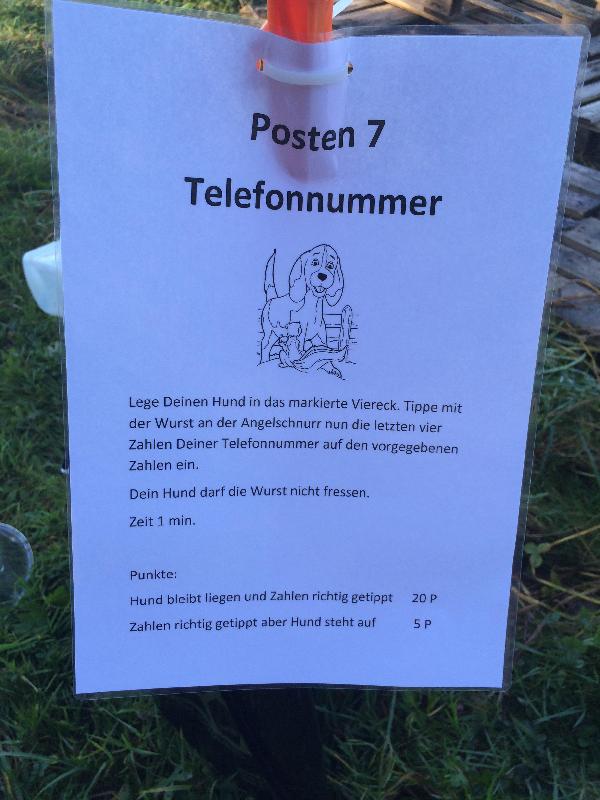 Posten 7
Telefonnummer
Lege Deinen Hund in das markierte Viereck. Tippe mit
der Wurst an der Angelschnurr nun die letzten vier
Zahlen Deiner Telefonnummer auf den vorgegebenen
Zahlen ein.
Dein Hund darf die Wurst nicht fressen.
Zeit 1 min.
Punkte:
Hund bleibt liegen und Zahlen richtig getippt 20 P
Zahlen richtig getippt aber Hund steht auf 5 P